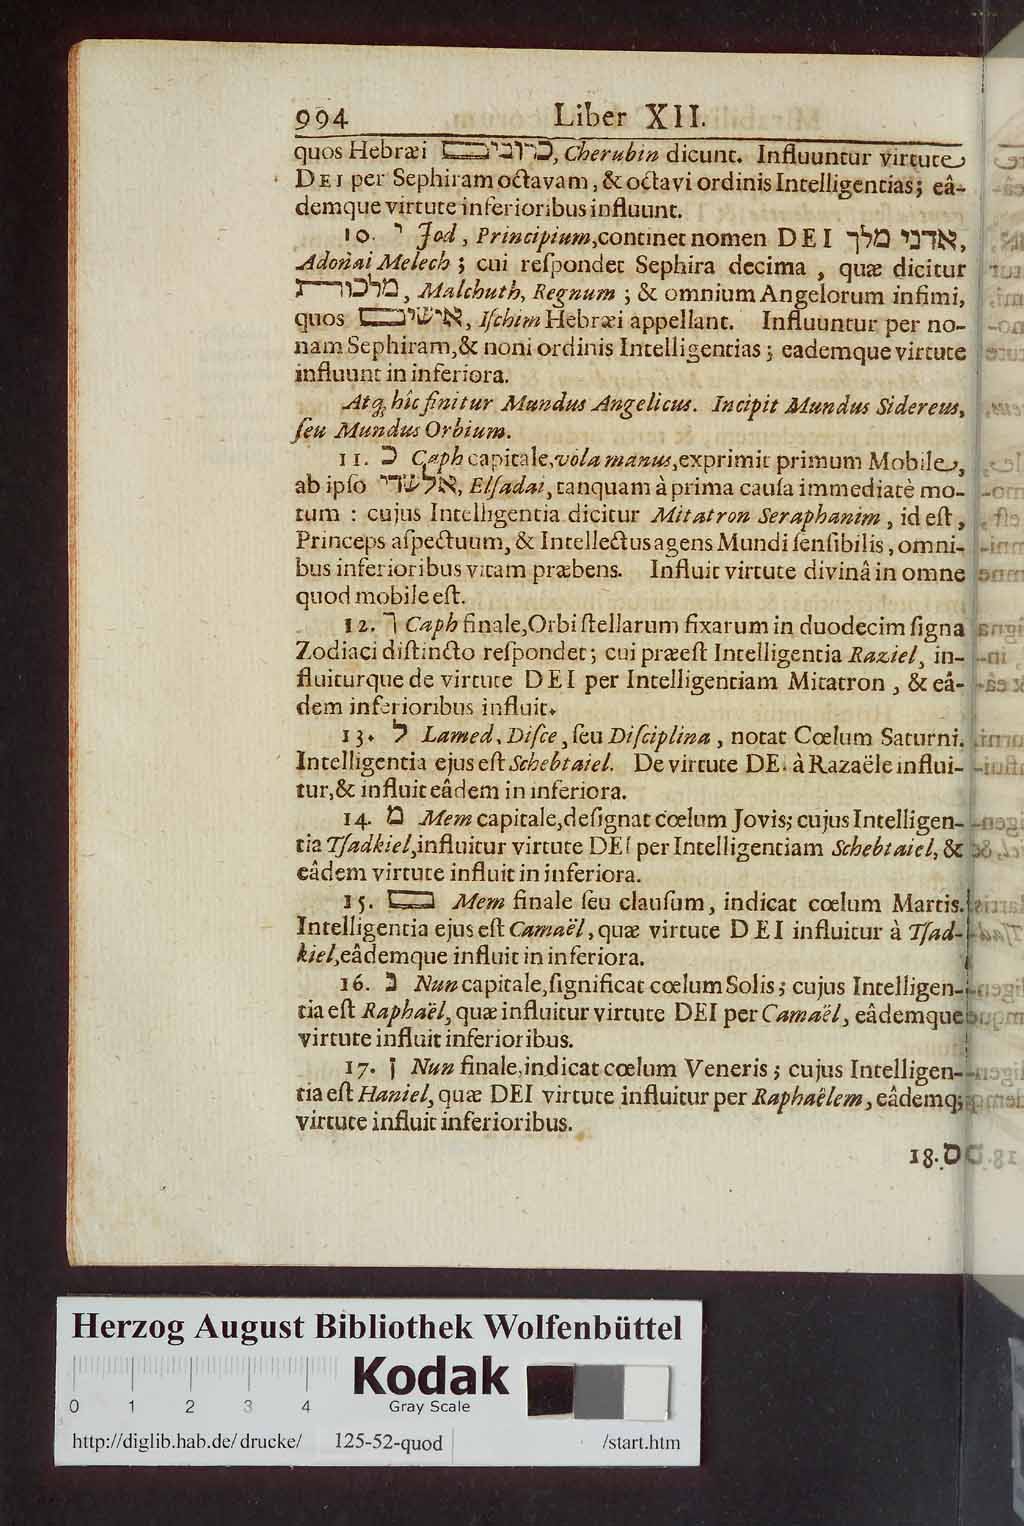 994 Liber XII.
quos Hebræi כרובים, Cherubin dicunt. Influuntur virtute
DEI per Sephiram octavam, & octavi ordinis Intelligentias; eâ-
demque virtute inferioribus influunt.
10. י Jod, Principium, continet nomen DEI אדני מלך,
Adonai Melech; cui reſpondet Sephira decima, quæ dicitur
מלכות, Malchuth, Regnum; & omnium Angelorum infimi,
quos אישים, Iſchim Hebræi appellant. Influuntur per no-
nam Sephiram, & noni ordinis Intelligentias; eademque virtute
influunt in inferiora.
Atq; hîc finitur Mundus Angelicus. Incipit Mundus Sidereus,
ſeu Mundus Orbium.
11. כ Caph capitale, vola manus, exprimit primum Mobile,
ab ipſo אלשדי, Elſadai, tanquam à prima cauſa immediatè mo-
tum: cujus Intelligentia dicitur Mitatron Seraphanim, id eſt,
Princeps aſpectuum, & Intellectus agens Mundi ſenſibilis, omni-
bus inferioribus vitam præbens. Influit virtute divinâ in omne
quod mobile eſt.
12. ך Caph finale, Orbi ſtellarum fixarum in duodecim ſigna
Zodiaci diſtincto reſpondet; cui præeſt Intelligentia Raziel, in-
fluiturque de virtute DEI per Intelligentiam Mitatron, & eâ-
dem inferioribus influit.
13. ל Lamed, Diſce, ſeu Diſciplina, notat Cœlum Saturni.
Intelligentia ejus eſt Schebtaiel. De virtute DEI à Razaële influi-
tur, & influit eâdem in inferiora.
14. מ Mem capitale, deſignat cœlum Jovis; cujus Intelligen-
tia Tſadkiel, influitur virtute DEI per Intelligentiam Schebtaiel, &
eâdem virtute influit in inferiora.
15. ם Mem finale ſeu clauſum, indicat cœlum Martis.
Intelligentia ejus eſt Camaël, quæ virtute DEI influitur à Tſad-
kiel, eâdemque influit in inferiora.
16. נ Nun capitale, ſignificat cœlum Solis; cujus Intelligen-
tia eſt Raphaël, quæ influitur virtute DEI per Camaël, eâdemque
virtute influit inferioribus.
17. ן Nun finale, indicat cœlum Veneris; cujus Intelligen-
tia eſt Haniel, quæ DEI virtute influitur per Raphaëlem, eâdemq;
virtute influit inferioribus.
18. ס
Herzog August Bibliothek Wolfenbüttel
Kodak
0 1 2 3 4 Gray Scale
http://diglib.hab.de/drucke/ 125-52-quod /start.htm